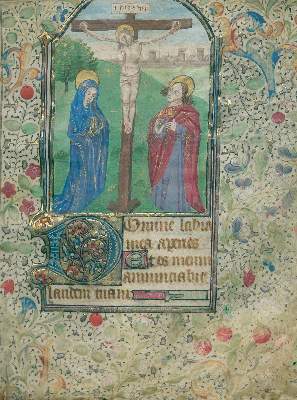 Domine labia
mea aperies
Et os meum
annunciabit
laudem tuam